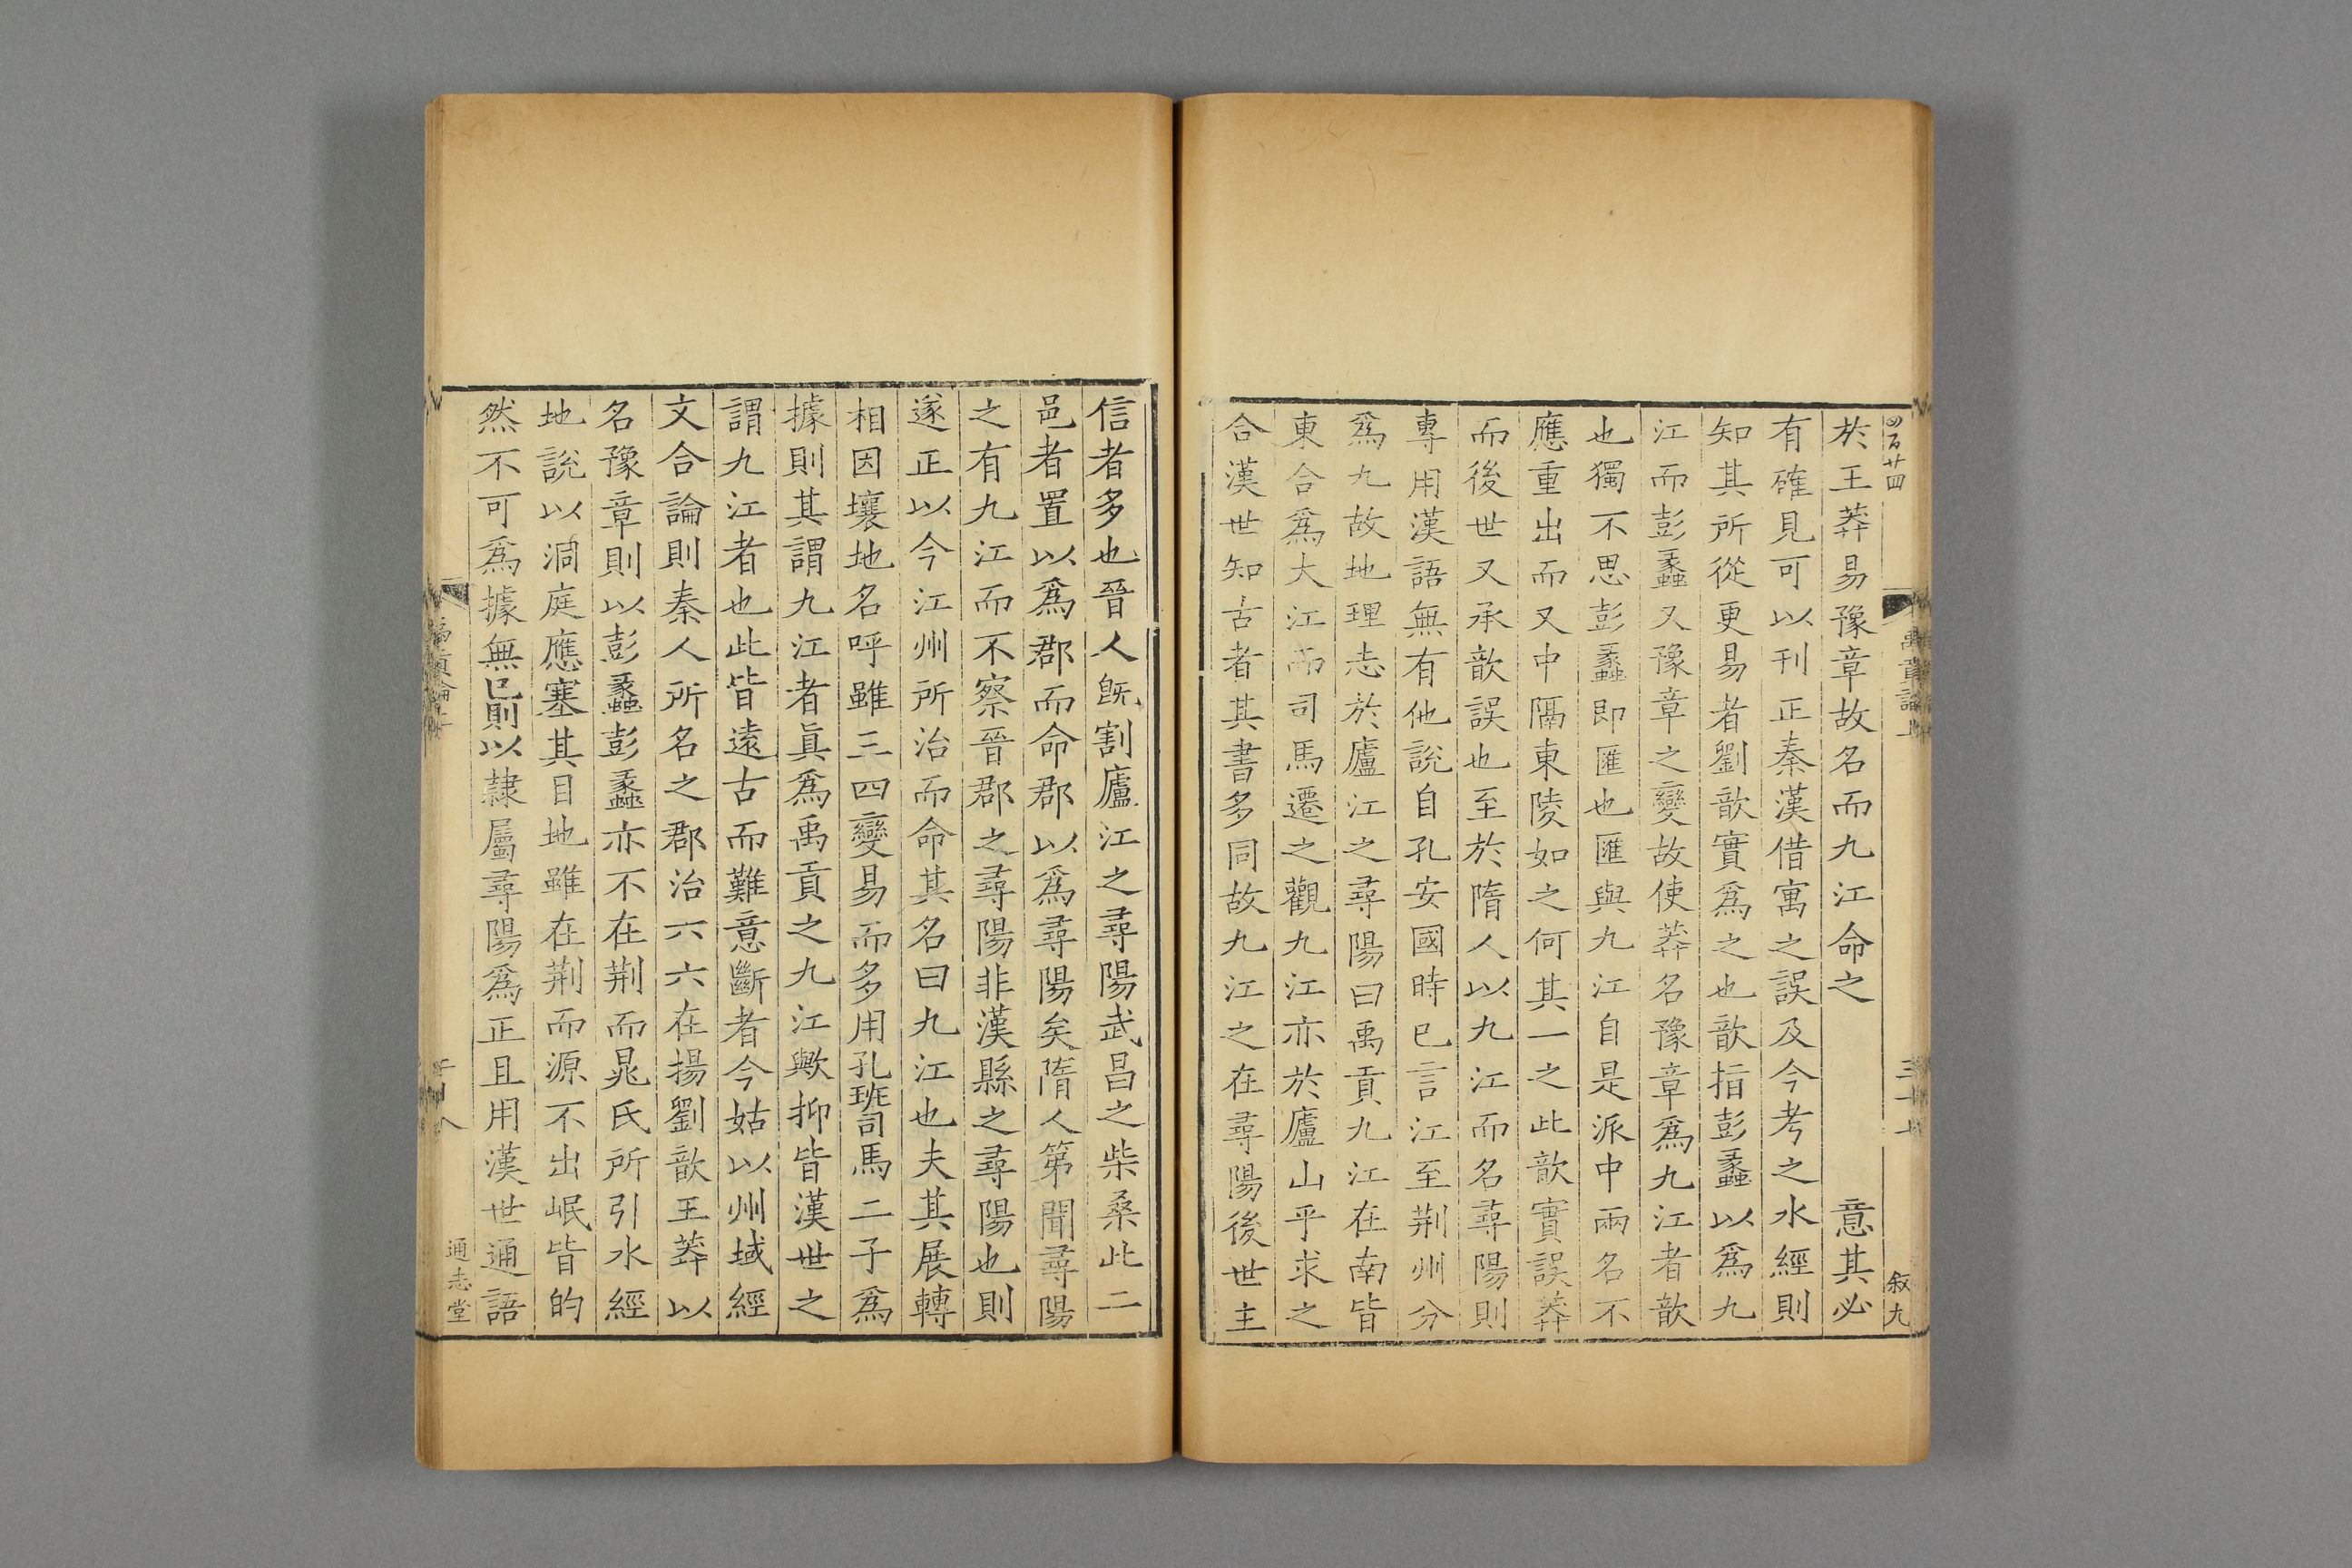 四百廿四
叙九
於王莽易豫章故名而九江命之　意其必
有確見可以刊正秦漢借寓之誤及今考之水經則
知其所從更易者劉歆實爲之也歆指彭蠡以爲九
江而彭蠡又豫章之變故使莽名豫章爲九江者歆
也獨不思彭蠡即匯也匯與九江自是派中兩名不
應重出而又中隔東陵如之何其一之此歆實誤莽
而後世又承歆誤也至於隋人以九江而名尋陽則
專用漢語無有他說自孔安國時已言江至荆州分
爲九故地理志於廬江之尋陽曰禹貢九江在南皆
東合爲大江而司馬遷之觀九江亦於廬山乎求之
合漢世知古者其書多同故九江之在尋陽後世主
信者多也晉人旣割廬江之尋陽武昌之柴桑此二
邑者置以爲郡而命郡以爲尋陽矣隋人第聞尋陽
之有九江而不察晉郡之尋陽非漢縣之尋陽也則
遂正以今江州所治而命其名曰九江也夫其展轉
相因壤地名呼雖三四變易而多用孔班司馬二子爲
據則其謂九江者眞爲禹貢之九江歟抑皆漢世之
謂九江者也此皆遠古而難意斷者今姑以州域經
文合論則秦人所名之郡治六六在揚劉歆王莽以
名豫章則以彭蠡彭蠡亦不在荆而晁氏所引水經
地說以洞庭應塞其目地雖在荆而源不出岷皆的
然不可爲據無已則以隷屬尋陽爲正且用漢世通語
通志堂